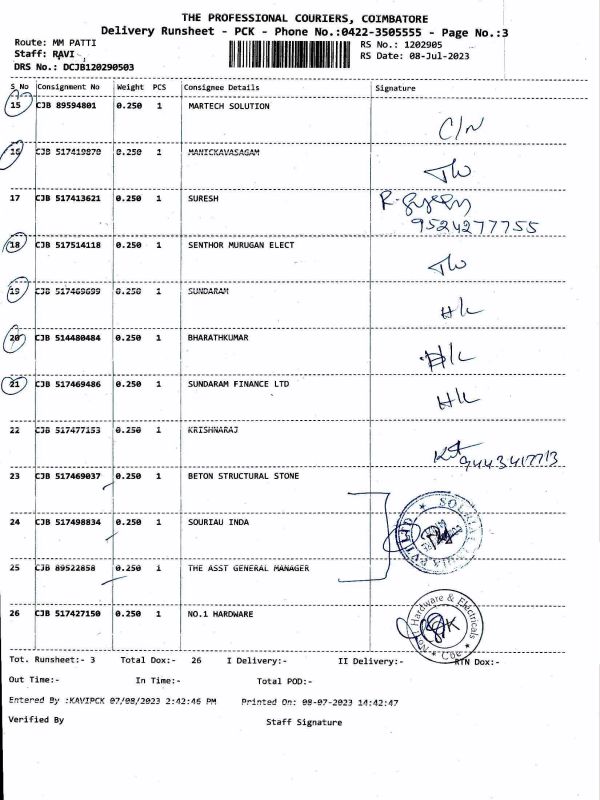 THE PROFESSIONAL COURIERS, COIMBATORE
Delivery Runsheet - PCK - Phone No.:0422-3505555 - Page No.:3
Route: MM PATTI
RS No.: 1202905
Staff: RAVI
RS Date: 08-Jul-2023
DRS No.: DCJB120290503
S_No Consignment No Weight PCS Consignee Details Signature
15 CJB 89594801 0.250 1 MARTECH SOLUTION C/N
16 CJB 517419870 0.250 1 MANICKAVASAGAM
17 CJB 517413621 0.250 1 SURESH
9524277755
18 CJB 517514118 0.250 1 SENTHOR MURUGAN ELECT
19 CJB 517469699 0.250 1 SUNDARAM H/L
20 CJB 514480484 0.250 1 BHARATHKUMAR H/L
21 CJB 517469486 0.250 1 SUNDARAM FINANCE LTD H/L
22 CJB 517477153 0.250 1 KRISHNARAJ
23 CJB 517469037 0.250 1 BETON STRUCTURAL STONE
24 CJB 517498834 0.250 1 SOURIAU INDA
25 CJB 89522858 0.250 1 THE ASST GENERAL MANAGER
26 CJB 517427150 0.250 1 NO.1 HARDWARE
Hardware & Electricals
Tot. Runsheet:- 3 Total Dox:- 26 I Delivery:- II Delivery:- RTN Dox:-
Out Time:- In Time:- Total POD:-
Entered By :KAVIPCK 07/08/2023 2:42:46 PM Printed On: 08-07-2023 14:42:47
Verified By Staff Signature